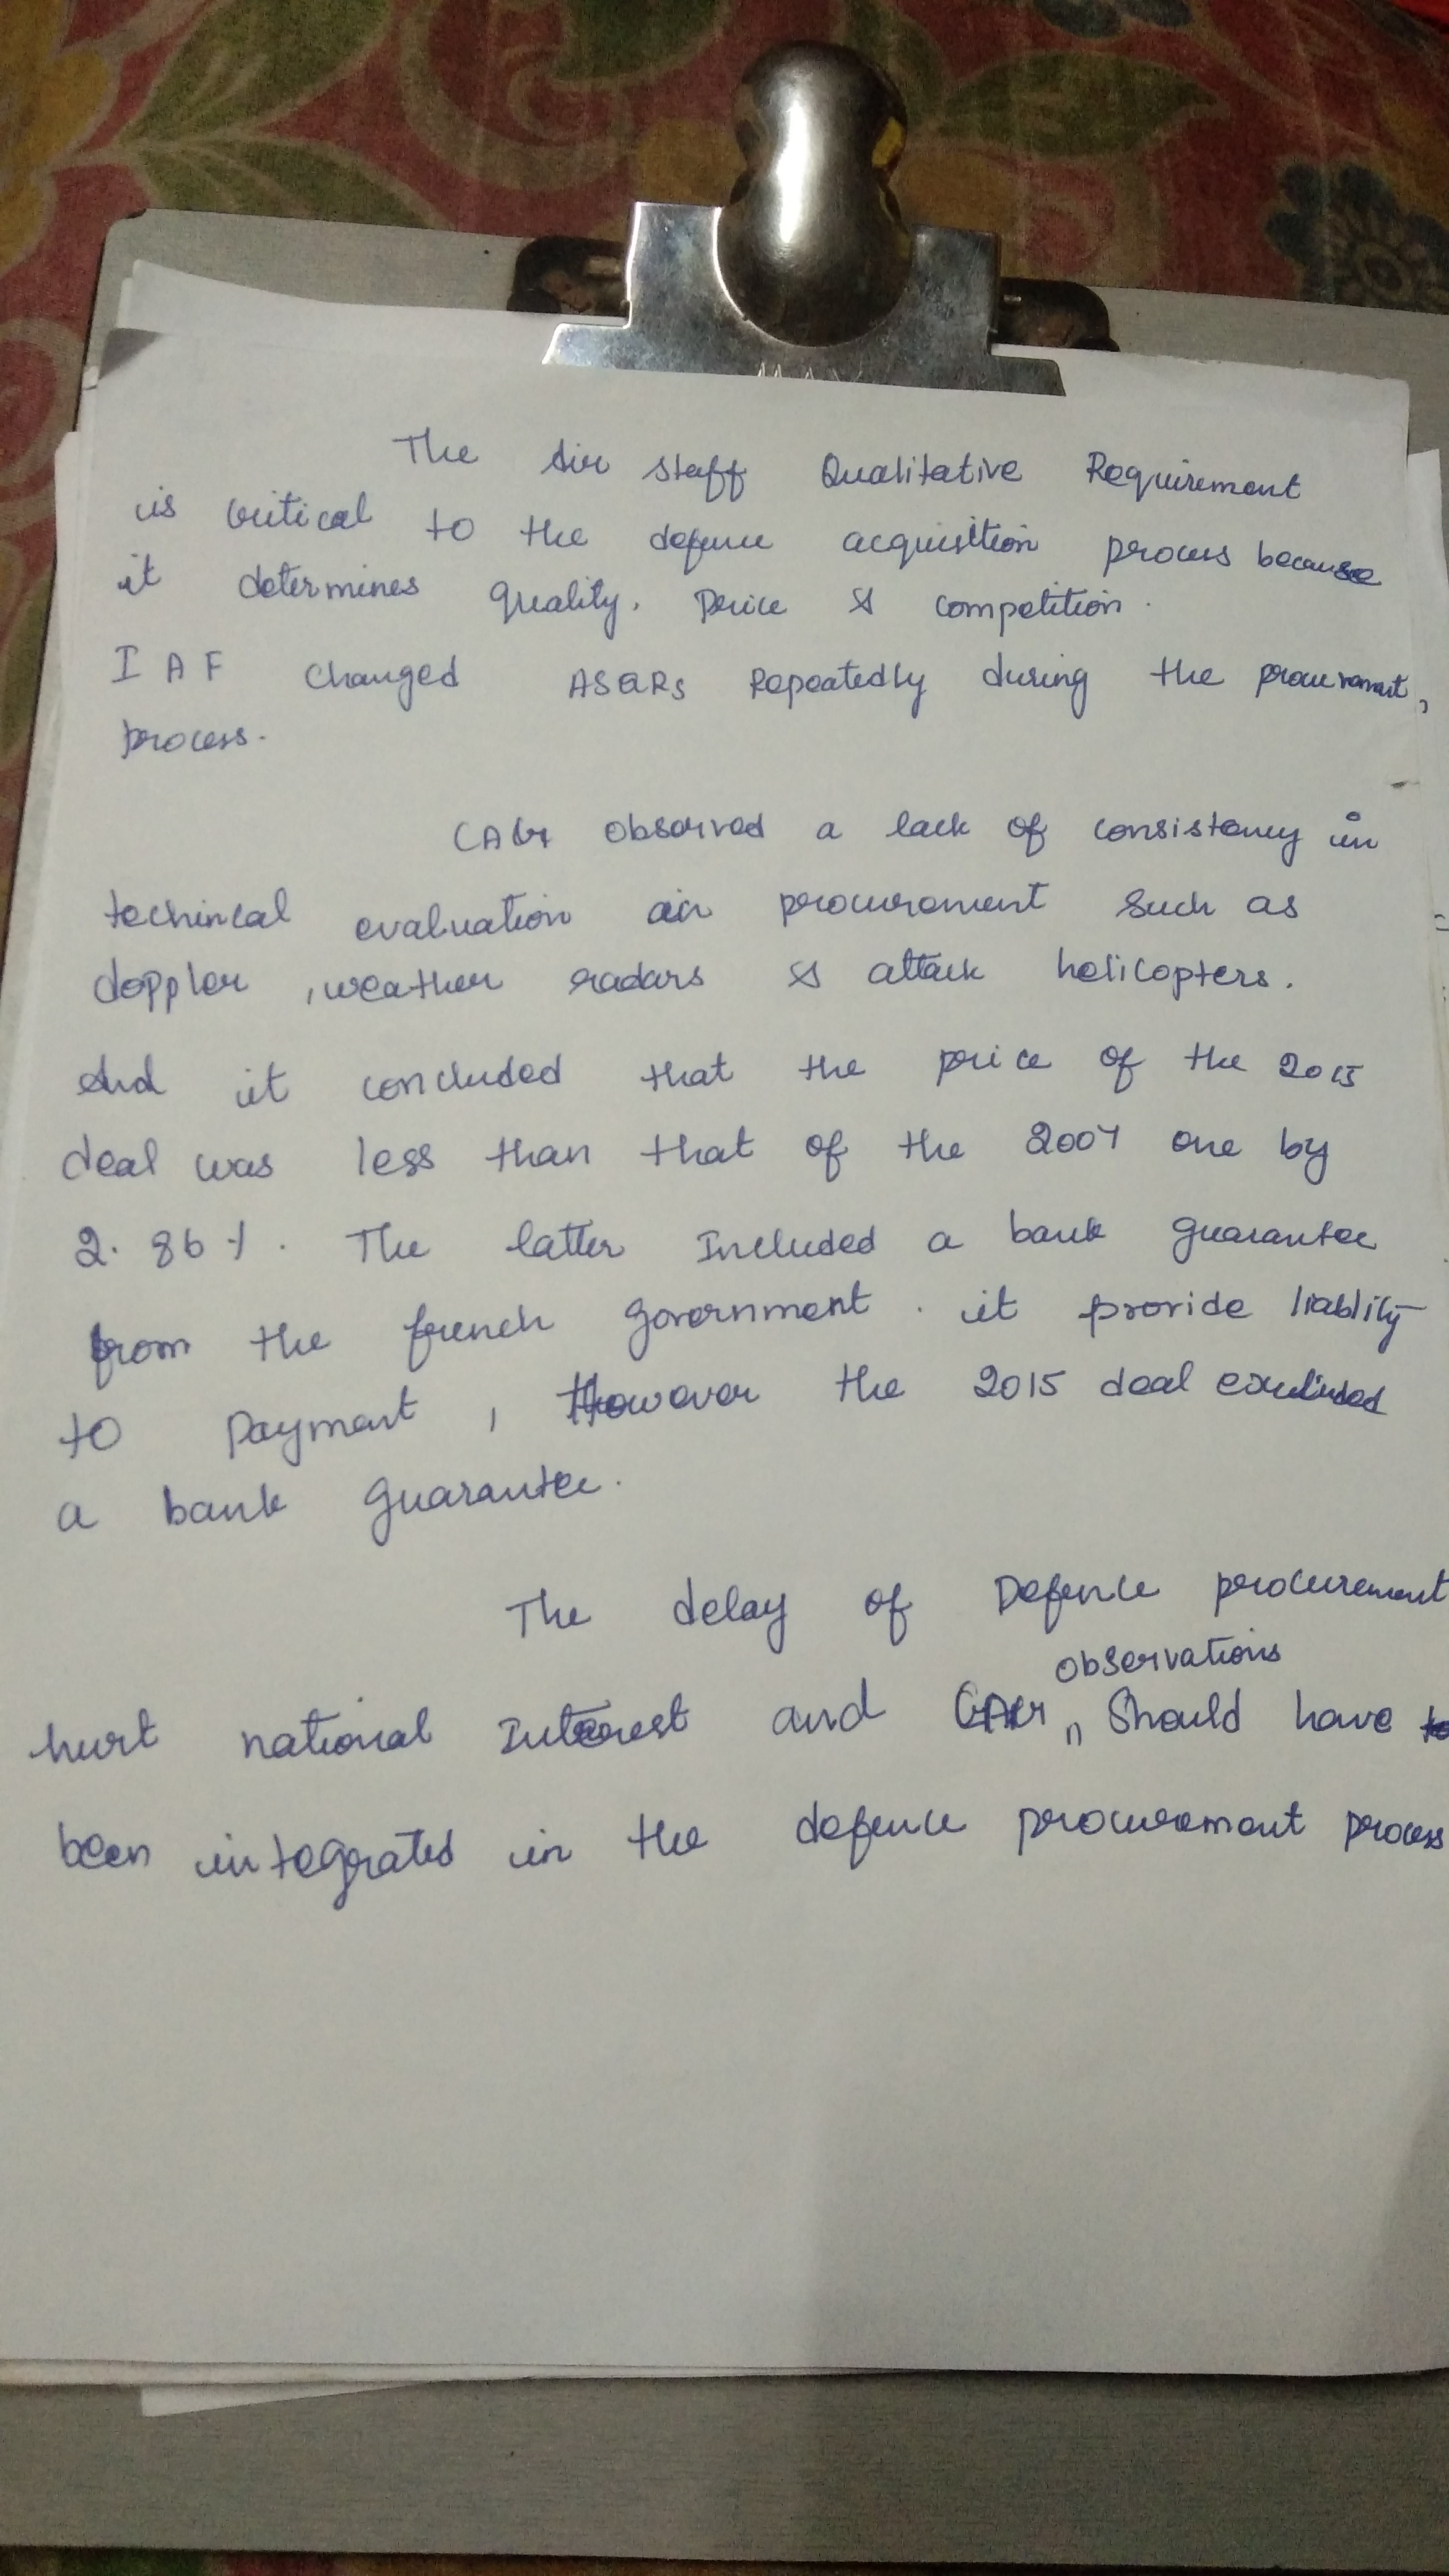 The Air staff Qualitative Requirement
is critical to the defence acquisition process because
it determines quality, Price & competition.
IAF changed ASQRs Repeatedly during the procurement,
process.
CAG observed a lack of consistency in
techincal evaluation air procurement such as
doppler, weather radars & attack helicopters.
And it concluded that the price of the 2015
deal was less than that of the 2007 one by
2.86%. The latter Included a bank guarantee
from the french government. it provide liablity
to Payment, However the 2015 deal excluded
a bank guarantee.
The delay of Defence procurement
observations
hurt national Interest and CAG, Should have
been integrated in the defence procurement process